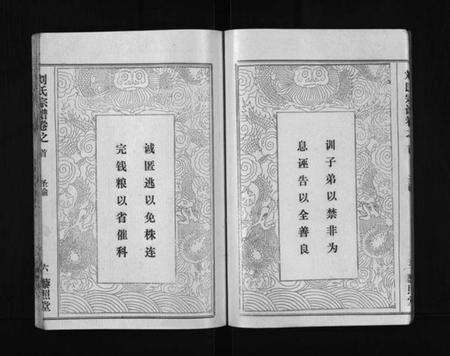 训子弟以禁非为
息诬告以全善良
诫匿逃以免株连
完钱粮以省催科
刘氏宗谱卷之首
圣谕
六
藜照堂